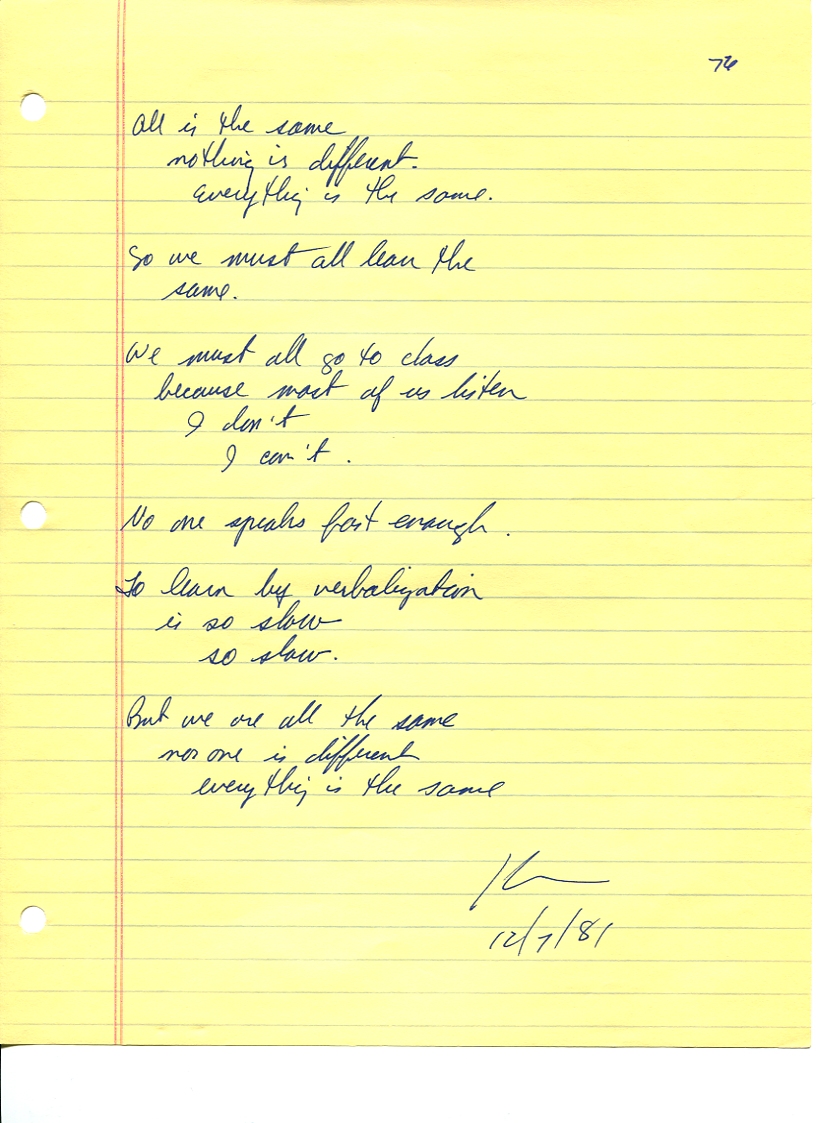 76
All is the same
nothing is different.
everything is the same.
So we must all learn the
same.
We must all go to class
because most of us listen
I don't
I can't.
No one speaks fast enough.
To learn by verbalization
is so slow
so slow.
But we are all the same
no one is different
everything is the same
12/7/81